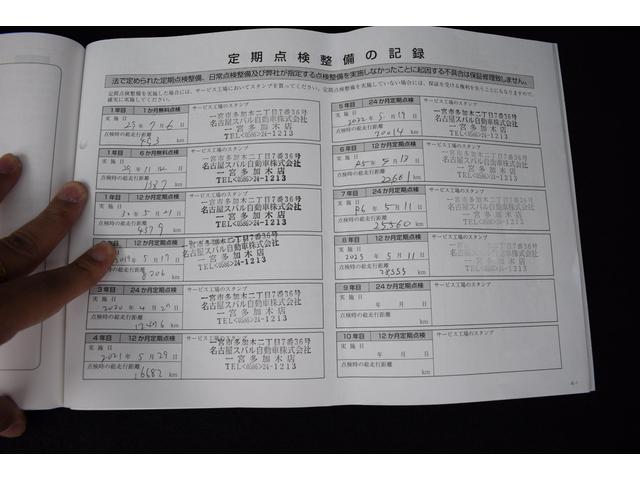 定期点検整備の記録
法で定められた定期点検整備、日常点検整備及び弊社が指定する点検整備を実施しなかったことに起因する不具合は保証修理致しません。
定期点検整備を実施した場合には、サービス工場においてスタンプを貰ってください。定期点検整備を実施していない場合には、保証を受ける権利を失うことにもなりますので、
確実に実施してください。
1年目 1か月無料点検 サービス工場のスタンプ
実施日
29年7月6日
点検時の総走行距離
453 km
一宮市多加木二丁目7番36号
名古屋スバル自動車株式会社
一宮多加木店
TEL<0586>24-1213
1年目 6か月無料点検 サービス工場のスタンプ
実施日
29年11月 日
点検時の総走行距離
1387 km
一宮市多加木二丁目7番36号
名古屋スバル自動車株式会社
一宮多加木店
TEL<0586>24-1213
1年目 12か月定期点検 サービス工場のスタンプ
実施日
30年5月 日
点検時の総走行距離
4379 km
一宮市多加木二丁目7番36号
名古屋スバル自動車株式会社
一宮多加木店
TEL<0586>24-1213
年目 12か月定期点検 サービス工場のスタンプ
実施日
2019年5月17日
点検時の総走行距離
8206 km
一宮市多加木二丁目7番36号
名古屋スバル自動車株式会社
一宮多加木店
TEL<0586>24-1213
3年目 24か月定期点検 サービス工場のスタンプ
実施日
2020年4月 日
点検時の総走行距離
12476 km
一宮市多加木二丁目7番36号
名古屋スバル自動車株式会社
一宮多加木店
TEL<0586>24-1213
4年目 12か月定期点検 サービス工場のスタンプ
実施日
2021年5月29日
点検時の総走行距離
16682 km
一宮市多加木二丁目7番36号
名古屋スバル自動車株式会社
一宮多加木店
TEL<0586>24-1213
5年目 24か月定期点検 サービス工場のスタンプ
実施日
2022年5月19日
点検時の総走行距離
20014 km
一宮市多加木二丁目7番36号
名古屋スバル自動車株式会社
一宮多加木店
TEL<0586>24-1213
6年目 12か月定期点検 サービス工場のスタンプ
実施日
R5年5月13日
点検時の総走行距離
22661 km
一宮市多加木二丁目7番36号
名古屋スバル自動車株式会社
一宮多加木店
TEL<0586>24-1213
7年目 24か月定期点検 サービス工場のスタンプ
実施日
R6年5月11日
点検時の総走行距離
25560 km
一宮市多加木二丁目7番36号
名古屋スバル自動車株式会社
一宮多加木店
TEL<0586>24-1213
8年目 12か月定期点検 サービス工場のスタンプ
実施日
2025年5月11日
点検時の総走行距離
28555 km
一宮市多加木二丁目7番36号
名古屋スバル自動車株式会社
一宮多加木店
TEL<0586>24-1213
9年目 24か月定期点検 サービス工場のスタンプ
実施日
年 月 日
点検時の総走行距離
km
10年目 12か月定期点検 サービス工場のスタンプ
実施日
年 月 日
点検時の総走行距離
km